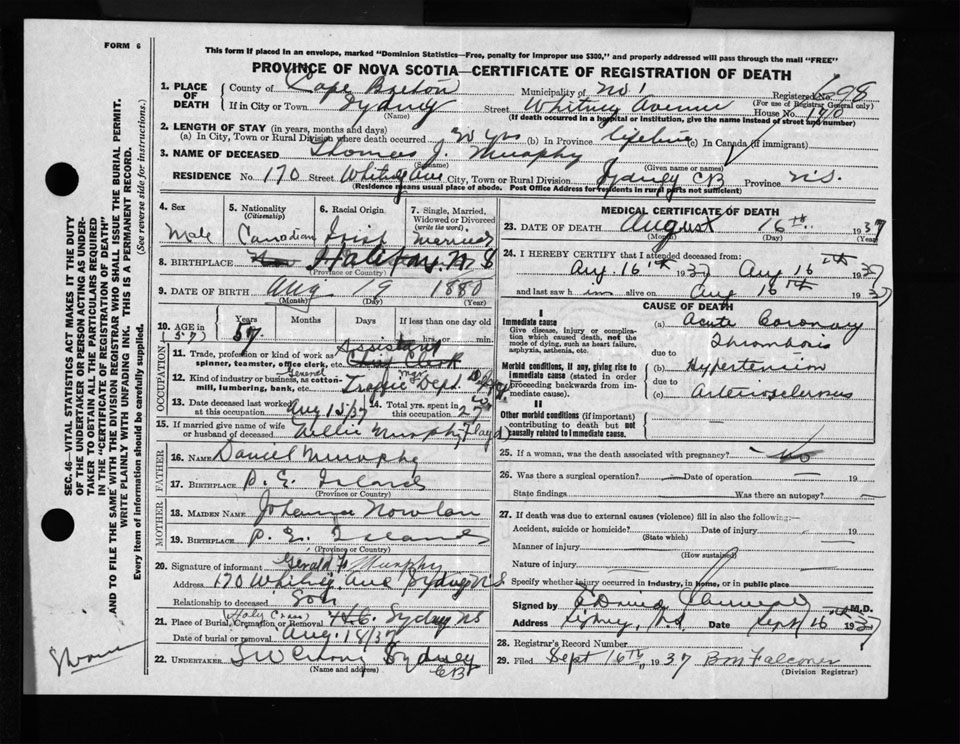 FORM 6
This form if placed in an envelope, marked "Dominion Statistics—Free, penalty for improper use $300," and properly addressed will pass through the mail "FREE"
PROVINCE OF NOVA SCOTIA—CERTIFICATE OF REGISTRATION OF DEATH
1. PLACE OF DEATH County of Cape Breton Municipality of No 1 Registered No. 98
(For use of Registrar General only)
If in City or Town Sydney Street Whitney Avenue House No. 170
(Name) (If death occurred in a hospital or institution, give the name instead of street and number)
2. LENGTH OF STAY (in years, months and days)
(a) In City, Town or Rural Division where death occurred yrs (b) In Province lifetime (c) In Canada (if immigrant)
3. NAME OF DECEASED Thomas J. Murphy
(Surname) (Given name or names)
RESIDENCE No. 170 Street Whitney Ave City, Town or Rural Division Sydney CB Province N.S.
(Residence means usual place of abode. Post Office Address for residents in rural parts not sufficient)
SEC. 46—VITAL STATISTICS ACT MAKES IT THE DUTY
OF THE UNDERTAKER OR PERSON ACTING AS UNDER-
TAKER TO OBTAIN ALL THE PARTICULARS REQUIRED
IN THE "CERTIFICATE OF REGISTRATION OF DEATH"
AND TO FILE THE SAME WITH THE DIVISION REGISTRAR WHO SHALL ISSUE THE BURIAL PERMIT.
WRITE PLAINLY WITH UNFADING INK. THIS IS A PERMANENT RECORD.
Every item of information should be carefully supplied. (See reverse side for instructions.)
4. Sex 5. Nationality (Citizenship) 6. Racial Origin 7. Single, Married, Widowed or Divorced (write the word)
Male Canadian Irish Married
8. BIRTHPLACE Halifax. N S
(Province or Country)
9. DATE OF BIRTH Aug 19 1880
(Month) (Day) (Year)
10. AGE in Years Months Days If less than one day old
(57) 57 hrs. or min.
OCCUPATION
11. Trade, profession or kind of work as spinner, teamster, office clerk, etc. Assistant Chief Clerk
12. Kind of industry or business, as cotton-mill, lumbering, bank, etc. General Mgr Traffic Dept.
13. Date deceased last worked at this occupation Aug 15/37 14. Total yrs. spent in this occupation 27
15. If married give name of wife or husband of deceased Nellie Murphy (Floyd)
FATHER
16. NAME Daniel Murphy
17. BIRTHPLACE P. E. Island
(Province or Country)
MOTHER
18. MAIDEN NAME Johanna Nowlan
19. BIRTHPLACE P. E. Island
(Province or Country)
20. Signature of informant Gerald F. Murphy
Address 170 Whitney Ave Sydney N S
Relationship to deceased Son
21. Place of Burial, Cremation or Removal (Holy Cross) Sydney NS
Date of burial or removal Aug. 18/37
22. UNDERTAKER Sydney CB
(Name and address)
MEDICAL CERTIFICATE OF DEATH
23. DATE OF DEATH August 16th 1937
(Month) (Day) (Year)
24. I HEREBY CERTIFY that I attended deceased from:
Aug. 16th 1937 Aug 16th 1937
and last saw him alive on Aug 16th 1937
CAUSE OF DEATH
I
Immediate cause (a) Acute Coronary Thrombosis
Give disease, injury or complication which caused death, not the mode of dying, such as heart failure, asphyxia, asthenia, etc.
due to
Morbid conditions, if any, giving rise to immediate cause (stated in order proceeding backwards from immediate cause). (b) Hypertension
due to
(c) Arteriosclerosus
II
Other morbid conditions (if important) contributing to death but not causally related to immediate cause.
25. If a woman, was the death associated with pregnancy? No
26. Was there a surgical operation? Date of operation 19
State findings Was there an autopsy?
27. If death was due to external causes (violence) fill in also the following:—
Accident, suicide or homicide? Date of injury 19
(State which)
Manner of injury
(How sustained)
Nature of injury
Specify whether injury occurred in industry, in home, or in public place
Signed by M.D.
Address Sydney, N.S. Date Sept 16th 1937
28. Registrar's Record Number
29. Filed Sept 16th 1937 B M Falconer
(Division Registrar)